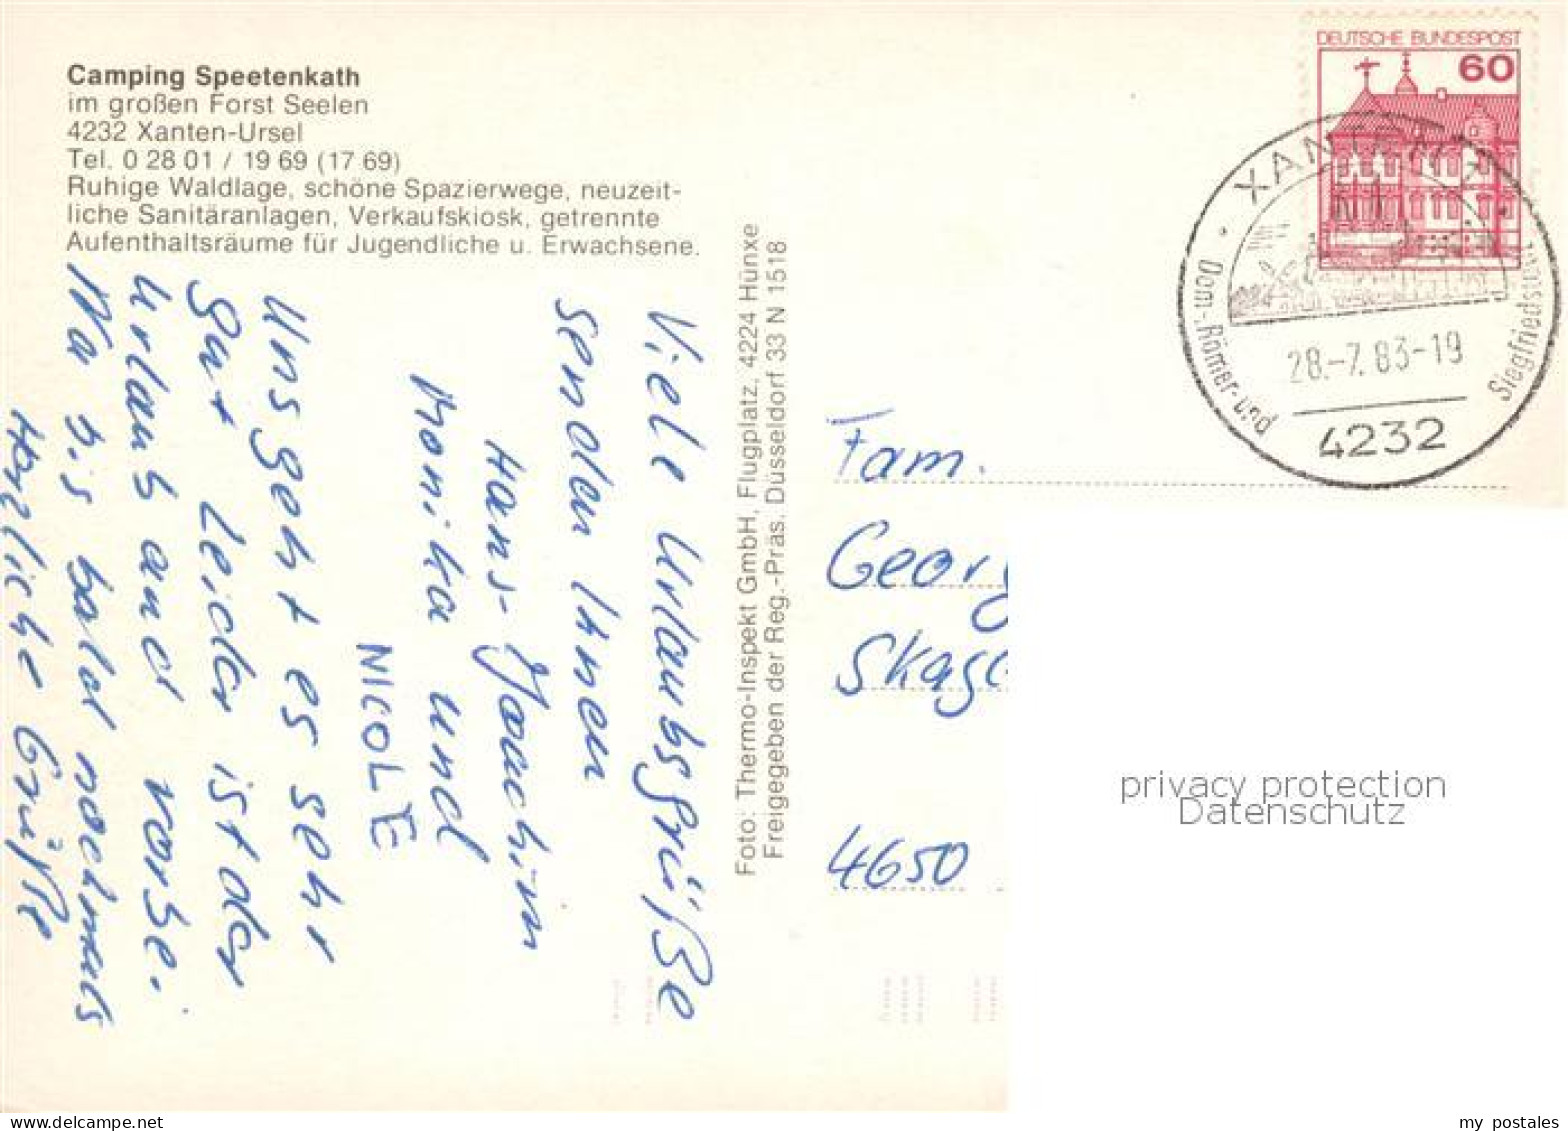 Camping Speetenkath
im großen Forst Seelen
4232 Xanten-Ursel
Tel. 0 28 01 / 19 69 (17 69)
Ruhige Waldlage, schöne Spazierwege, neuzeit-
liche Sanitäranlagen, Verkaufskiosk, getrennte
Aufenthaltsräume für Jugendliche u. Erwachsene.
Viele Urlaubsgrüße
senden Ihnen
Hans-Joachim
Monika und
NICOLE
Uns geht es sehr
gut Leider ist der
Urlaub auch vorbei.
Na bis bald nochmals
Herzliche Grüße
Foto: Thermo-Inspekt GmbH, Flugplatz, 4224 Hünxe
Freigegeben der Reg.-Präs. Düsseldorf 33 N 1518
DEUTSCHE BUNDESPOST
60
XANTEN 1
Dom-, Römer- und Siegfriedstadt
28.-7.83-19
4232
Fam.
Georg
Skag
4650
privacy protection
Datenschutz
my postales